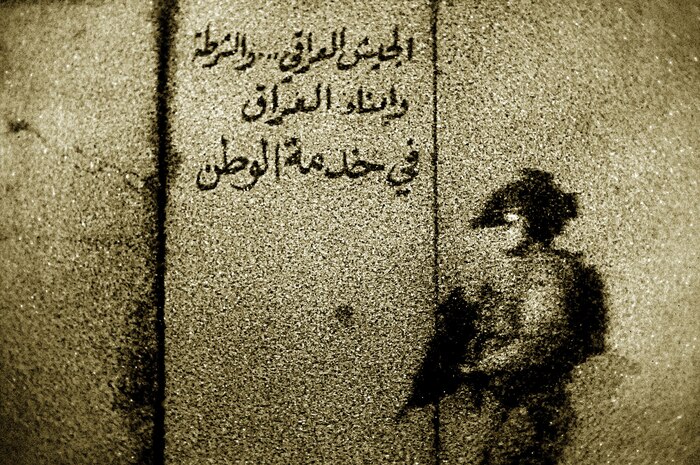 الجيش العراقي...والشرطة
وابناء العراق
في خدمة الوطن